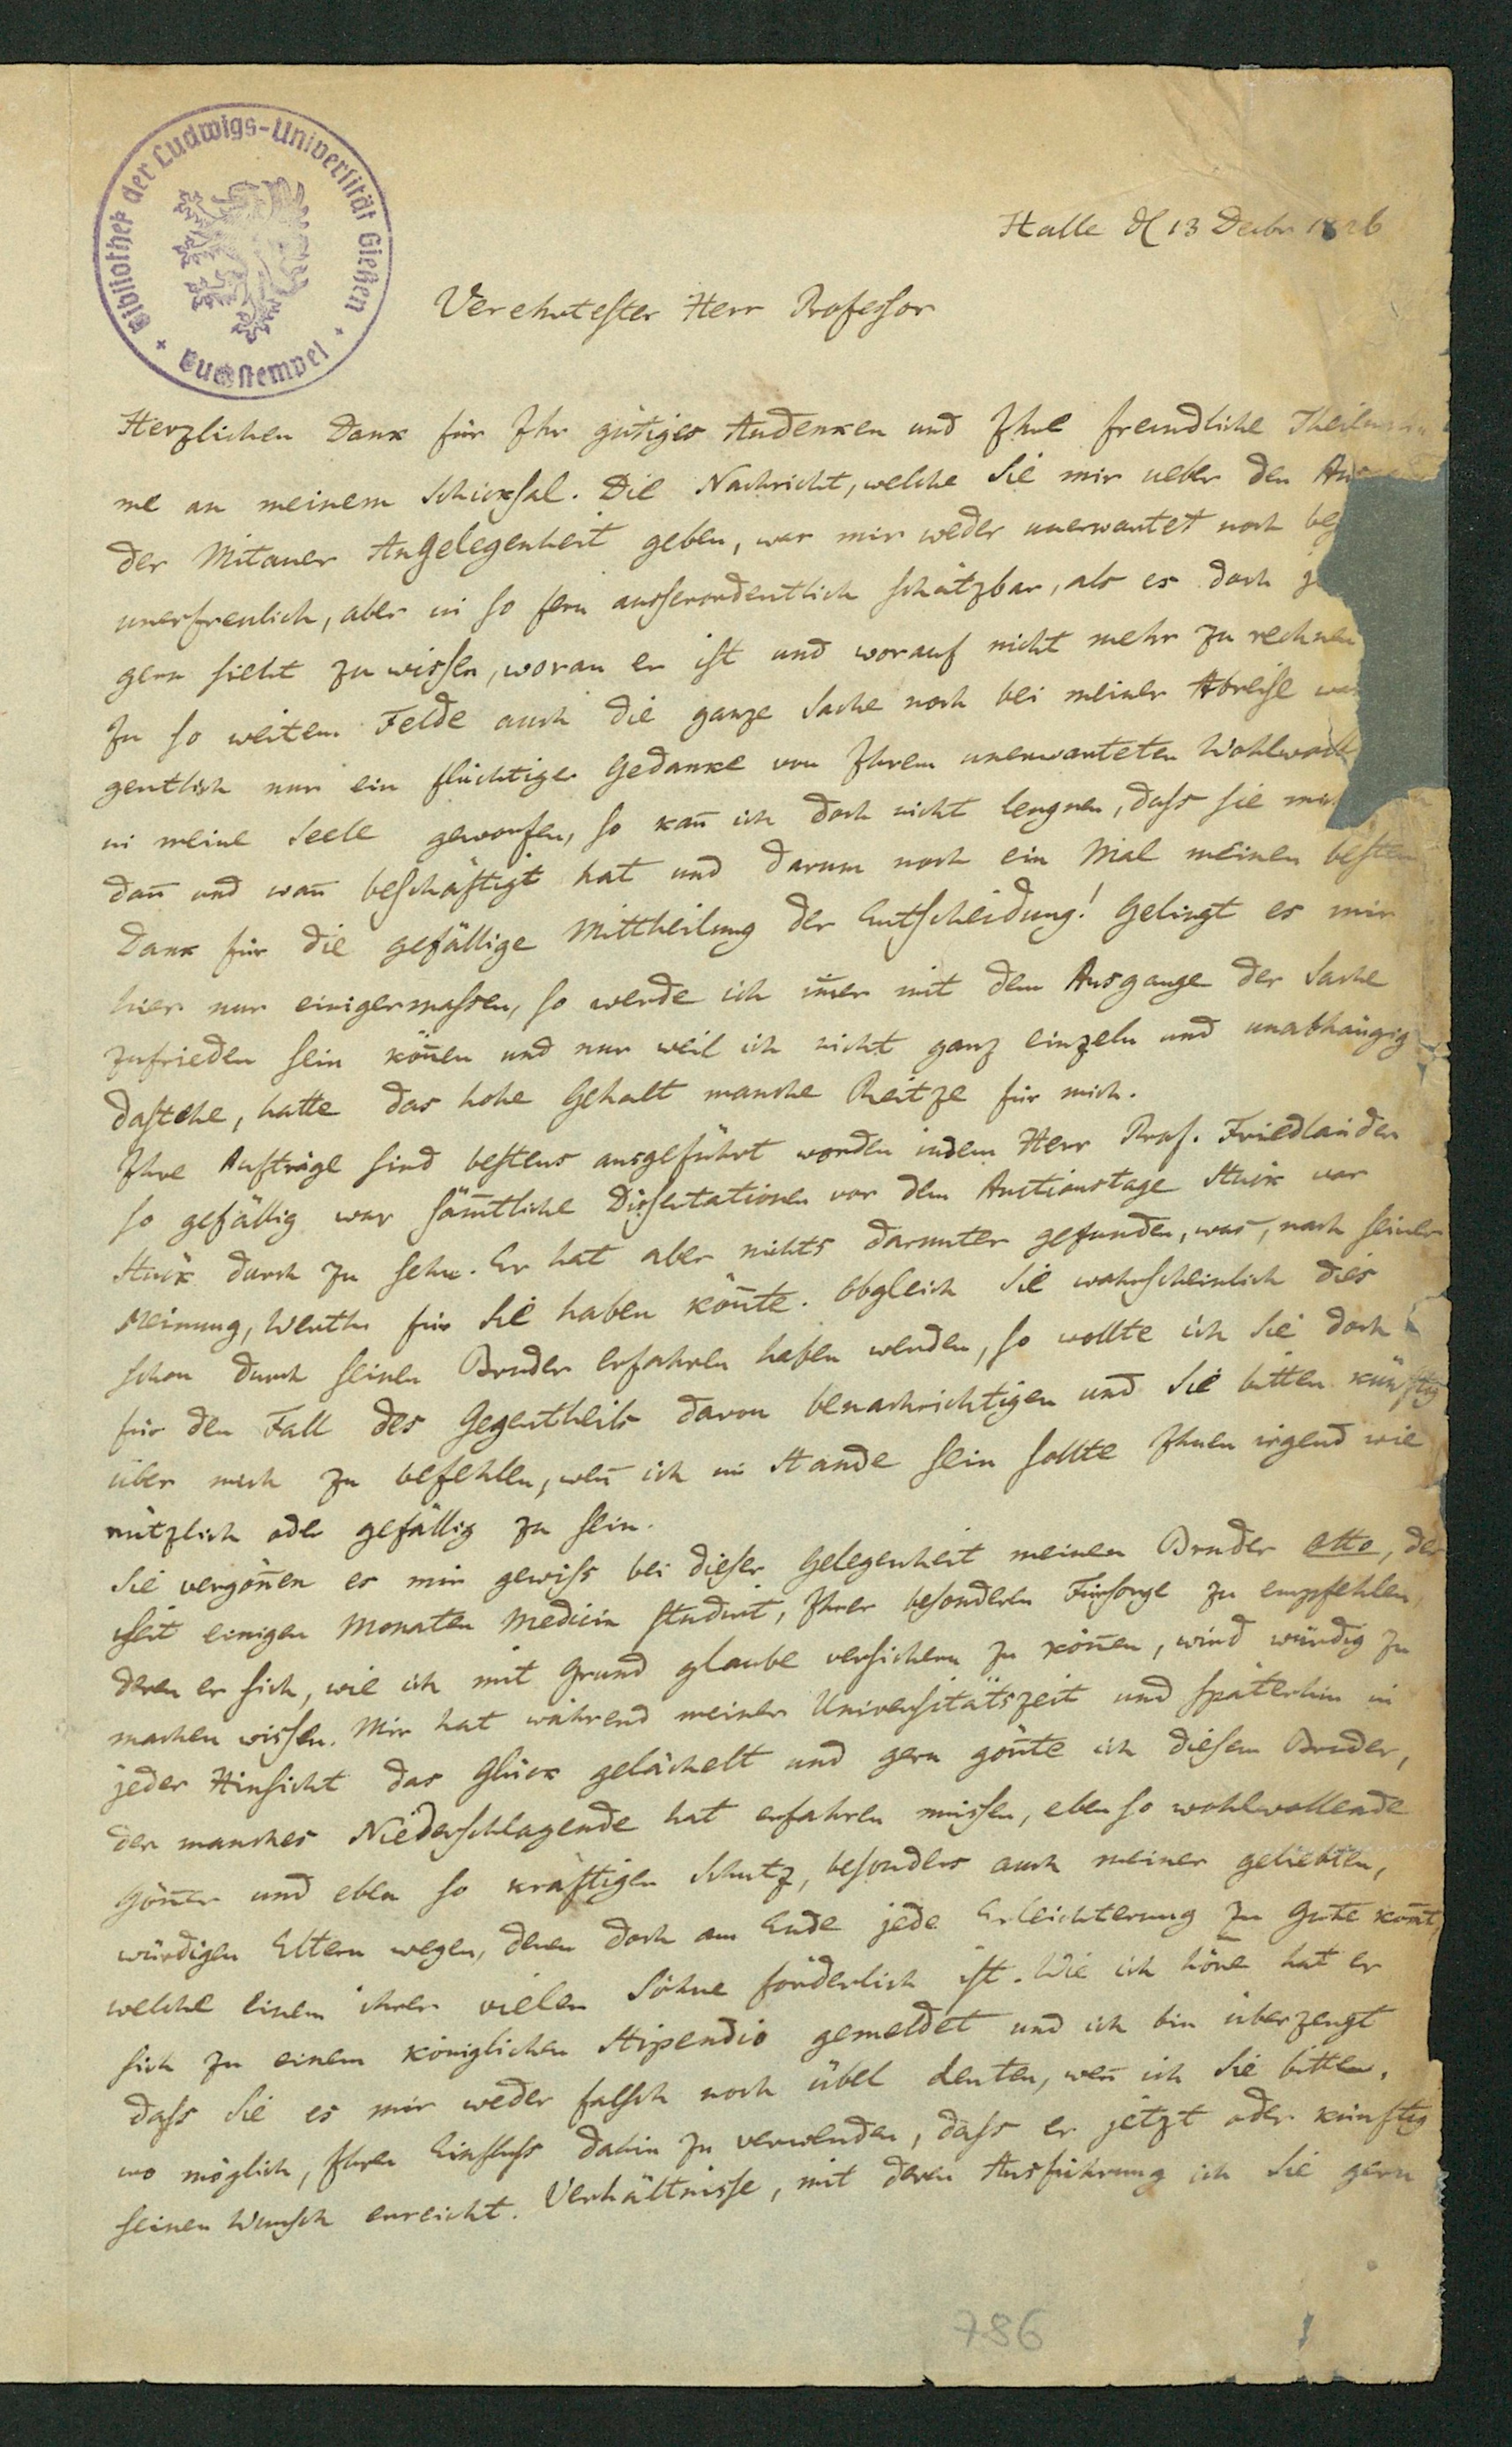 Bibliothek der Ludwigs-Universität Gießen
Buchstempel
Halle d 13 Decbr 1826
Verehrtester Herr Professor
Herzlichen Dank für Ihr gütiges Andenken und Ihre freundliche
me an meinem Schicksal. Die Nachricht, welche Sie mir ueber den
der Mitauer Angelegenheit geben, war mir weder unerwartet noch
unerfreulich, aber in so fern ausserordentlich schätzbar, als es doch
gern sieht zu wissen, woran er ist und worauf nicht mehr zu rechnen
In so weitem Felde auch die ganze Sache noch bei meiner Abreise
gentlich nur ein flüchtiger Gedanke von Ihrem unerwarteten
in meine Seele geworfen, so kan̄ ich doch nicht leugnen, dass sie
dan̄ und wan̄ beschäftigt hat und darum noch ein Mal meinen besten
Dank für die gefällige Mittheilung der Entscheidung! Gelingt es mir
hier nur einigermassen, so werde ich im̄er mit dem Ausgange der Sache
zufrieden sein kön̄en und nur weil ich nicht ganz einzeln und unabhängig
dastehe, hatte das hohe Gehalt manche Reitze für mich.
Ihre Aufträge sind bestens ausgeführt worden indem Herr Prof. Friedländer
so gefällig war säm̄tliche Dissertationen vor dem Auctionstage Stück vor
Stück durch zu sehn. Er hat aber nichts darunter gefunden, was, nach seiner
Meinung, Werth für Sie haben kön̄te. Obgleich Sie wahrscheinlich dies
schon durch seinen Bruder erfahren haben werden, so wollte ich Sie doch
für den Fall des Gegentheils davon benachrichtigen und Sie bitten künftig
über mich zu befehlen, wen̄ ich im Stande sein sollte Ihnen irgend wie
nützlich oder gefällig zu sein.
Sie vergön̄en es mir gewiss bei dieser Gelegenheit meinen Bruder Otto, der
seit einigen Monaten Medicin studirt, Ihrer besonderen Fürsorge zu empfehlen,
deren er sich, wie ich mit Grund glaube versichern zu kön̄en, wird würdig zu
machen wissen. Mir hat während meiner Universitätszeit und späterhin in
jeder Hinsicht das Glück gelächelt und gern gön̄te ich diesem Bruder,
der manches Niederschlagende hat erfahren müssen, eben so wohlwollende
Gön̄er und eben so kräftigen Schutz, besonders auch meiner geliebten,
würdigen Eltern wegen, denen doch am Ende jede Erleichterung zu Gute kom̄t,
welche einem ihrer vielen Söhne förderlich ist. Wie ich höre hat er
sich zu einem königlichen Stipendio gemeldet und ich bin überzeugt
dass Sie es mir weder falsch noch übel deuten, wen̄ ich Sie bitte,
wo möglich, Ihren Einfluss dahin zu verwenden, dass er jetzt oder künftig
seinen Wunsch erreicht. Verhältnisse, mit deren Ausführung ich Sie gern
786